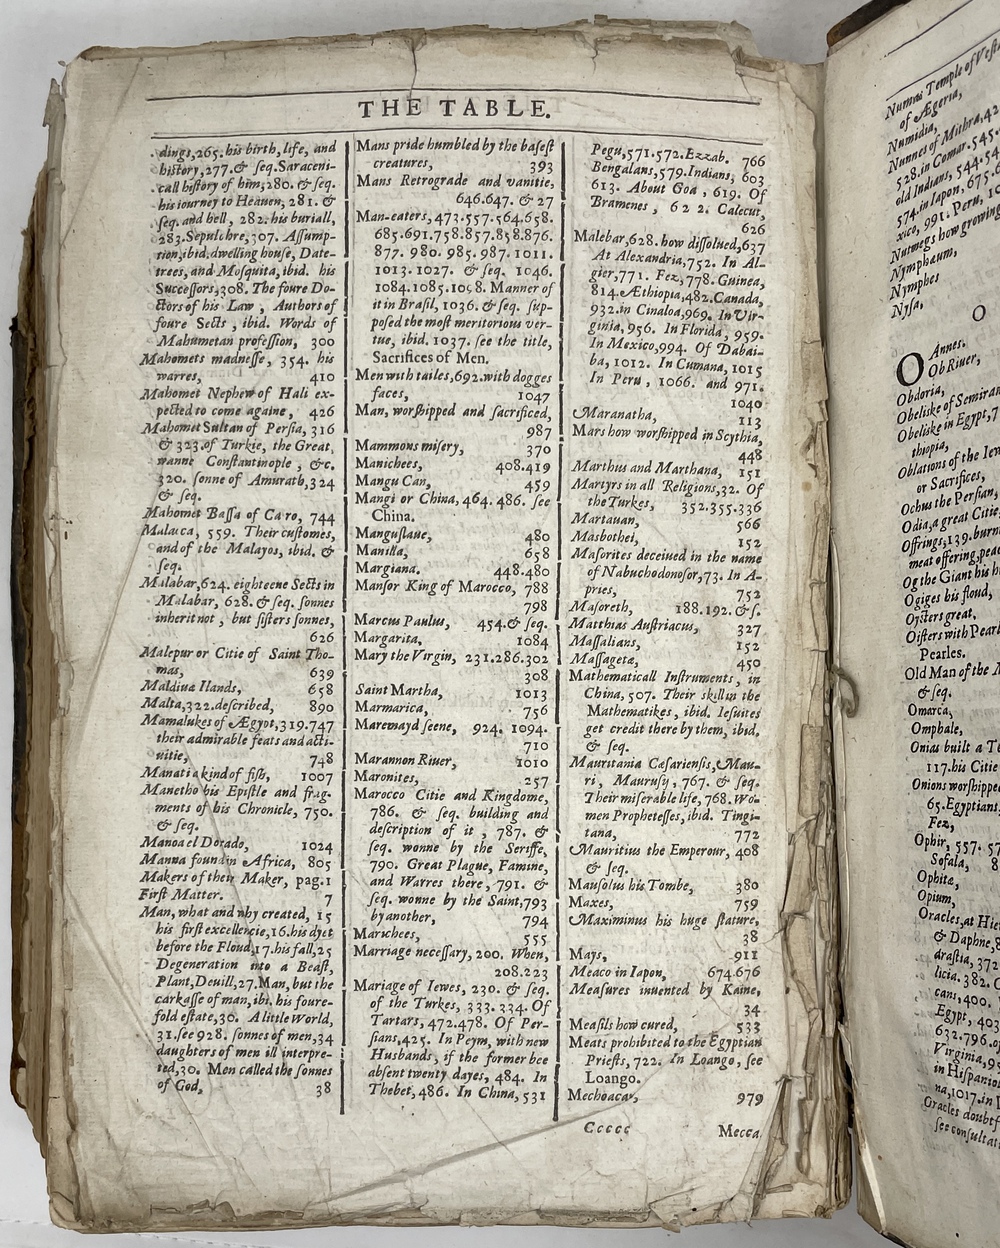 THE TABLE.
dings,265.his birth, life, and
hiſtory,277.& ſeq.Saraceni-
call hiſtory of him,280. & ſeq.
his iourney to Heauen, 281. &
ſeq. and hell, 282. his buriall,
283.Sepulchre,307. Aſſump-
tion,ibid.dwelling houſe, Date-
trees, and Moſquita, ibid. his
Succeſſors,308. The foure Do-
ctors of his Law, Authors of
foure Sects, ibid. Words of
Mahumetan profeſsion, 300
Mahomets madneſſe, 354. his
warres, 410
Mahomet Nephew of Hali ex-
pected to come againe, 426
Mahomet Sultan of Perſia, 316
& 323.of Turkie, the Great,
wanne Conſtantinople, &c.
320. ſonne of Amurath,324
& ſeq.
Mahomet Baſſa of Cairo, 744
Malaca, 559. Their cuſtomes,
and of the Malayos, ibid. &
ſeq.
Malabar,624. eighteene Sects in
Malabar, 628. & ſeq. ſonnes
inherit not, but ſiſters ſonnes,
626
Malepur or Citie of Saint Tho-
mas, 639
Maldiua Ilands, 658
Malta,322.deſcribed, 890
Mamalukes of Ægypt,319.747
their admirable feats and acti-
uitie, 748
Manati a kind of fiſh, 1007
Manetho his Epiſtle and frag-
ments of his Chronicle, 750.
& ſeq.
Manoa el Dorado, 1024
Manna found in Africa, 805
Makers of their Maker, pag.1
Firſt Matter. 7
Man, what and why created, 15
his firſt excellencie,16.his dyet
before the Floud,17.his fall,25
Degeneration into a Beaſt,
Plant,Deuill,27.Man, but the
carkaſſe of man,ibi. his foure-
fold eſtate,30. A little World,
31.ſee 928. ſonnes of men,34
daughters of men ill interpre-
ted,30. Men called the ſonnes
of God, 38
Mans pride humbled by the baſeſt
creatures, 393
Mans Retrograde and vanitie,
646.647. & 27
Man-eaters,473.557.564.658.
685.691.758.857.858.876.
877. 980. 985. 987. 1011.
1013.1027. & ſeq. 1046.
1084.1085.1098. Manner of
it in Braſil, 1036. & ſeq. ſup-
poſed the moſt meritorious ver-
tue, ibid. 1037. ſee the title,
Sacrifices of Men.
Men with tailes,692.with dogges
faces, 1047
Man, worſhipped and ſacrificed,
987
Mammous miſery, 370
Manichees, 408.419
Mangu Can, 459
Mangi or China,464. 486. ſee
China.
Manguſlaue, 480
Manilla, 658
Margiana. 448.480
Manſor King of Marocco, 788
798
Marcus Paulus, 454.& ſeq.
Margarita, 1084
Mary the Virgin, 231.286.302
308
Saint Martha, 1013
Marmarica, 756
Maremayd ſeene, 924. 1094.
710
Marannon Riuer, 1010
Maronites, 257
Marocco Citie and Kingdome,
786. & ſeq. building and
deſcription of it, 787. &
ſeq. wonne by the Seriffe,
790. Great Plague, Famine,
and Warres there, 791. &
ſeq. wonne by the Saint,793
by another, 794
Marichees, 555
Marriage neceſſary, 200. When,
208.223
Mariage of Iewes, 230. & ſeq.
of the Turkes, 333.334.Of
Tartars, 472.478. Of Per-
ſians,425. In Peym, with new
Husbands, if the former bee
abſent twenty dayes, 484. In
Thebet,486. In China, 531
Pegu,571.572.Ezzab. 766
Bengalans,579.Indians, 603
613. About Goa, 619. Of
Bramenes, 622. Calecut,
626
Malebar,628. how diſſolued,637
At Alexandria,752. In Al-
gier,771. Fez,778. Guinea,
814.Æthiopia,482.Canada,
932.in Cinaloa,969. In Vir-
ginia, 956. In Florida, 959.
In Mexico,994. Of Dabai-
ba, 1012. In Cumana, 1015
In Peru, 1066. and 971.
1040
Maranatha, 113
Mars how worſhipped in Scythia,
448
Marthus and Marthana, 151
Martyrs in all Religions,32. Of
the Turkes, 352.355.336
Martauan, 566
Masbothei, 152
Maſorites deceiued in the name
of Nabuchodonoſor,73. In A-
pries, 752
Maſoreth, 188.192.& ſ.
Matthias Auſtriacus, 327
Maſſalians, 152
Maſſagetæ, 450
Mathematicall Inſtruments, in
China, 507. Their skill in the
Mathematikes, ibid. Ieſuites
get credit there by them, ibid.
& ſeq.
Mauritania Cæſarienſis, Mau-
ri, Mauruſy, 767. & ſeq.
Their miſerable life, 768. Wo-
men Propheteſſes, ibid. Tingi-
tana, 772
Mauritius the Emperour, 408
& ſeq.
Mauſolus his Tombe, 380
Maxes, 759
Maximinus his huge ſtature,
38
Mays, 911
Meaco in Iapon, 674.676
Meaſures inuented by Kaine,
34
Meaſils how cured, 533
Meats prohibited to the Egyptian
Prieſts, 722. In Loango, ſee
Loango.
Mechoacan, 979
Ccccc Mecca
Numas Temple of Veſta
of Ægeria,
Numidia,
Nunnes of Mithra,42
528.in Comar.545.
old Indians, 544.54
574.in Iapon, 675.6
xico, 991. Peru, 10
Nutmegs how growing
Nymphæum,
Nymphes
Nyſa,
O
OAnnes.
Ob Riuer,
Obdoria,
Obeliske of Semiram
Obeliske in Egypt,7
thiopia,
Oblations of the Iew
or Sacrifices,
Ochus the Perſian,
Odia,a great Citie
Offrings,139.burn
meat offering,peac
Og the Giant his h
Ogiges his floud,
Oyſters great,
Oiſters with Pearl
Pearles.
Old Man of the M
& ſeq.
Omarca,
Omphale,
Onias built a Te
117.his Citie
Onions worſhippe
65.Egyptians,
Fez,
Ophir, 557. 57
Sofala, 8
Ophitæ,
Opium,
Oracles,at Hie
& Daphne,8
draſtia, 372
licia. 382. O
cans,400.
Egypt, 403
632.796.of
Virginia,95
in Hiſpanio
na,1017.in
Oracles doubtf
ſee conſultat